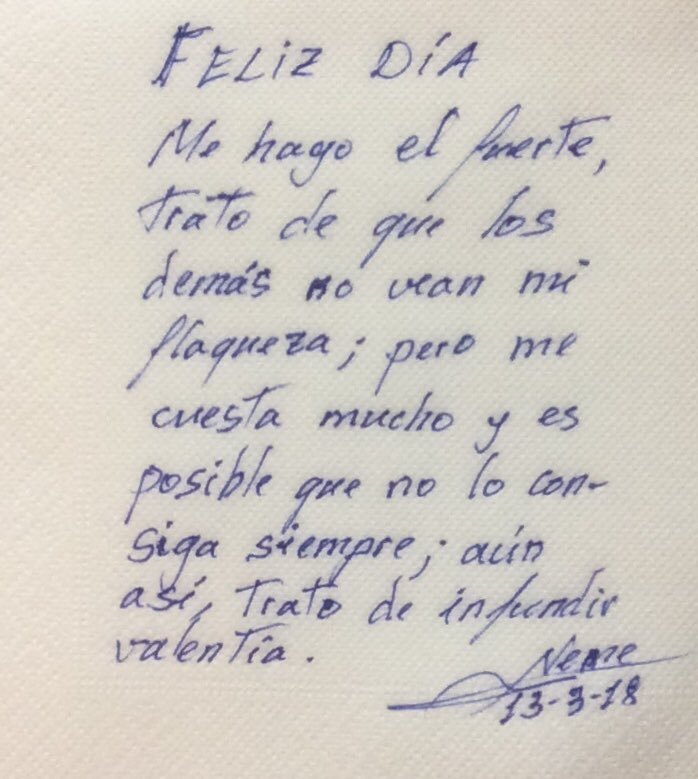 FELIZ DÍA
Me hago el fuerte,
trato de que los
demás no vean mi
flaqueza; pero me
cuesta mucho y es
posible que no lo con-
siga siempre; aún
así, trato de infundir
valentía.
Neme
13-3-18